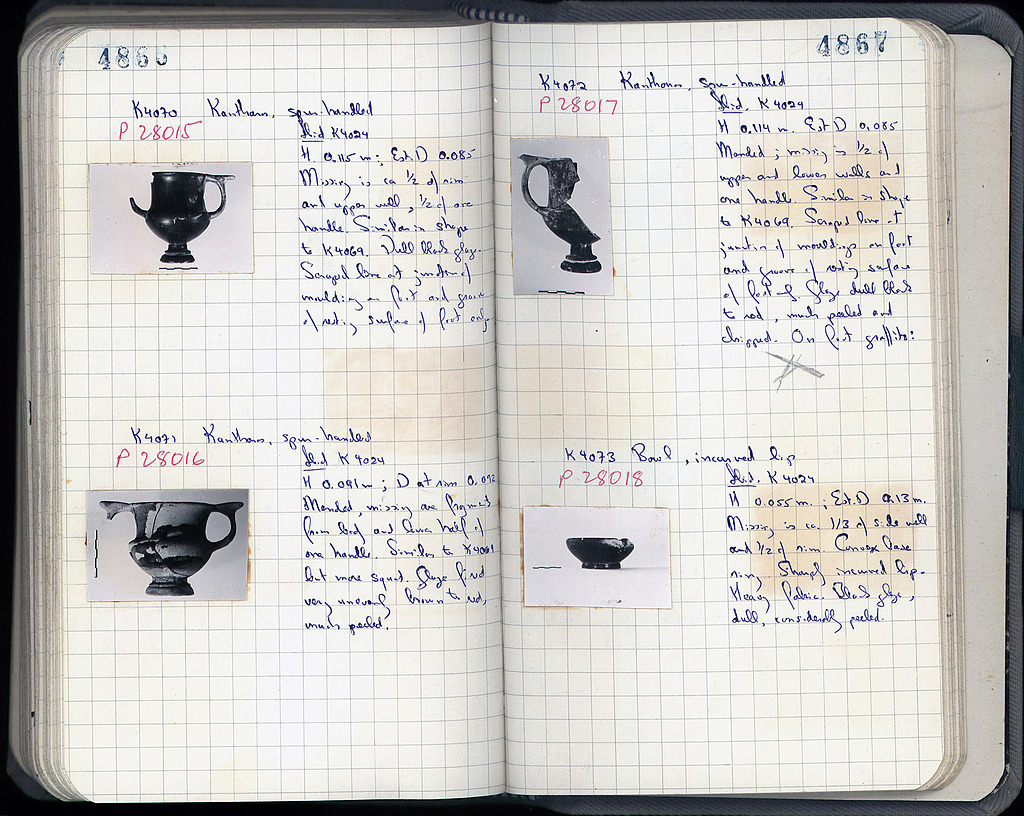 4866
K4070 Kantharos, spur-handled
P 28015
Ibid K4024
H 0.115 m; Est. D 0.085
Missing is ca 1/2 of rim
and upper wall, 1/2 of one
handle. Similar in shape
to K4069. Dull black glaze.
Scraped line at junction of
moulding on foot and groove
of resting surface of foot only.
K4071 Kantharos, spur-handled
P 28016
Ibid K4024
H 0.091m; D at rim 0.092
Mended, missing are fragments
from body and lower half of
one handle. Similar to
but more squat. Glaze fired
very unevenly brown to red,
much peeled.
4867
K4072 Kantharos, spur-handled
P 28017
Ibid. K4024
H 0.114 m. Est D 0.085
Mended; missing is 1/2 of
upper and lower walls and
one handle. Similar in shape
to K4069. Scraped line at
junction of mouldings on foot
and groove of resting surface
of foot only. Glaze dull black
to red, much peeled and
chipped. On foot graffito:
K4073 Bowl, incurved lip
P 28018
Ibid. K4024
H 0.055m.; Est. D 0.13m.
Missing is ca. 1/3 of side wall
and 1/2 of rim. Convex base
ring. Sharply incurved lip.
Heavy fabric. Black glaze,
dull, considerably peeled.